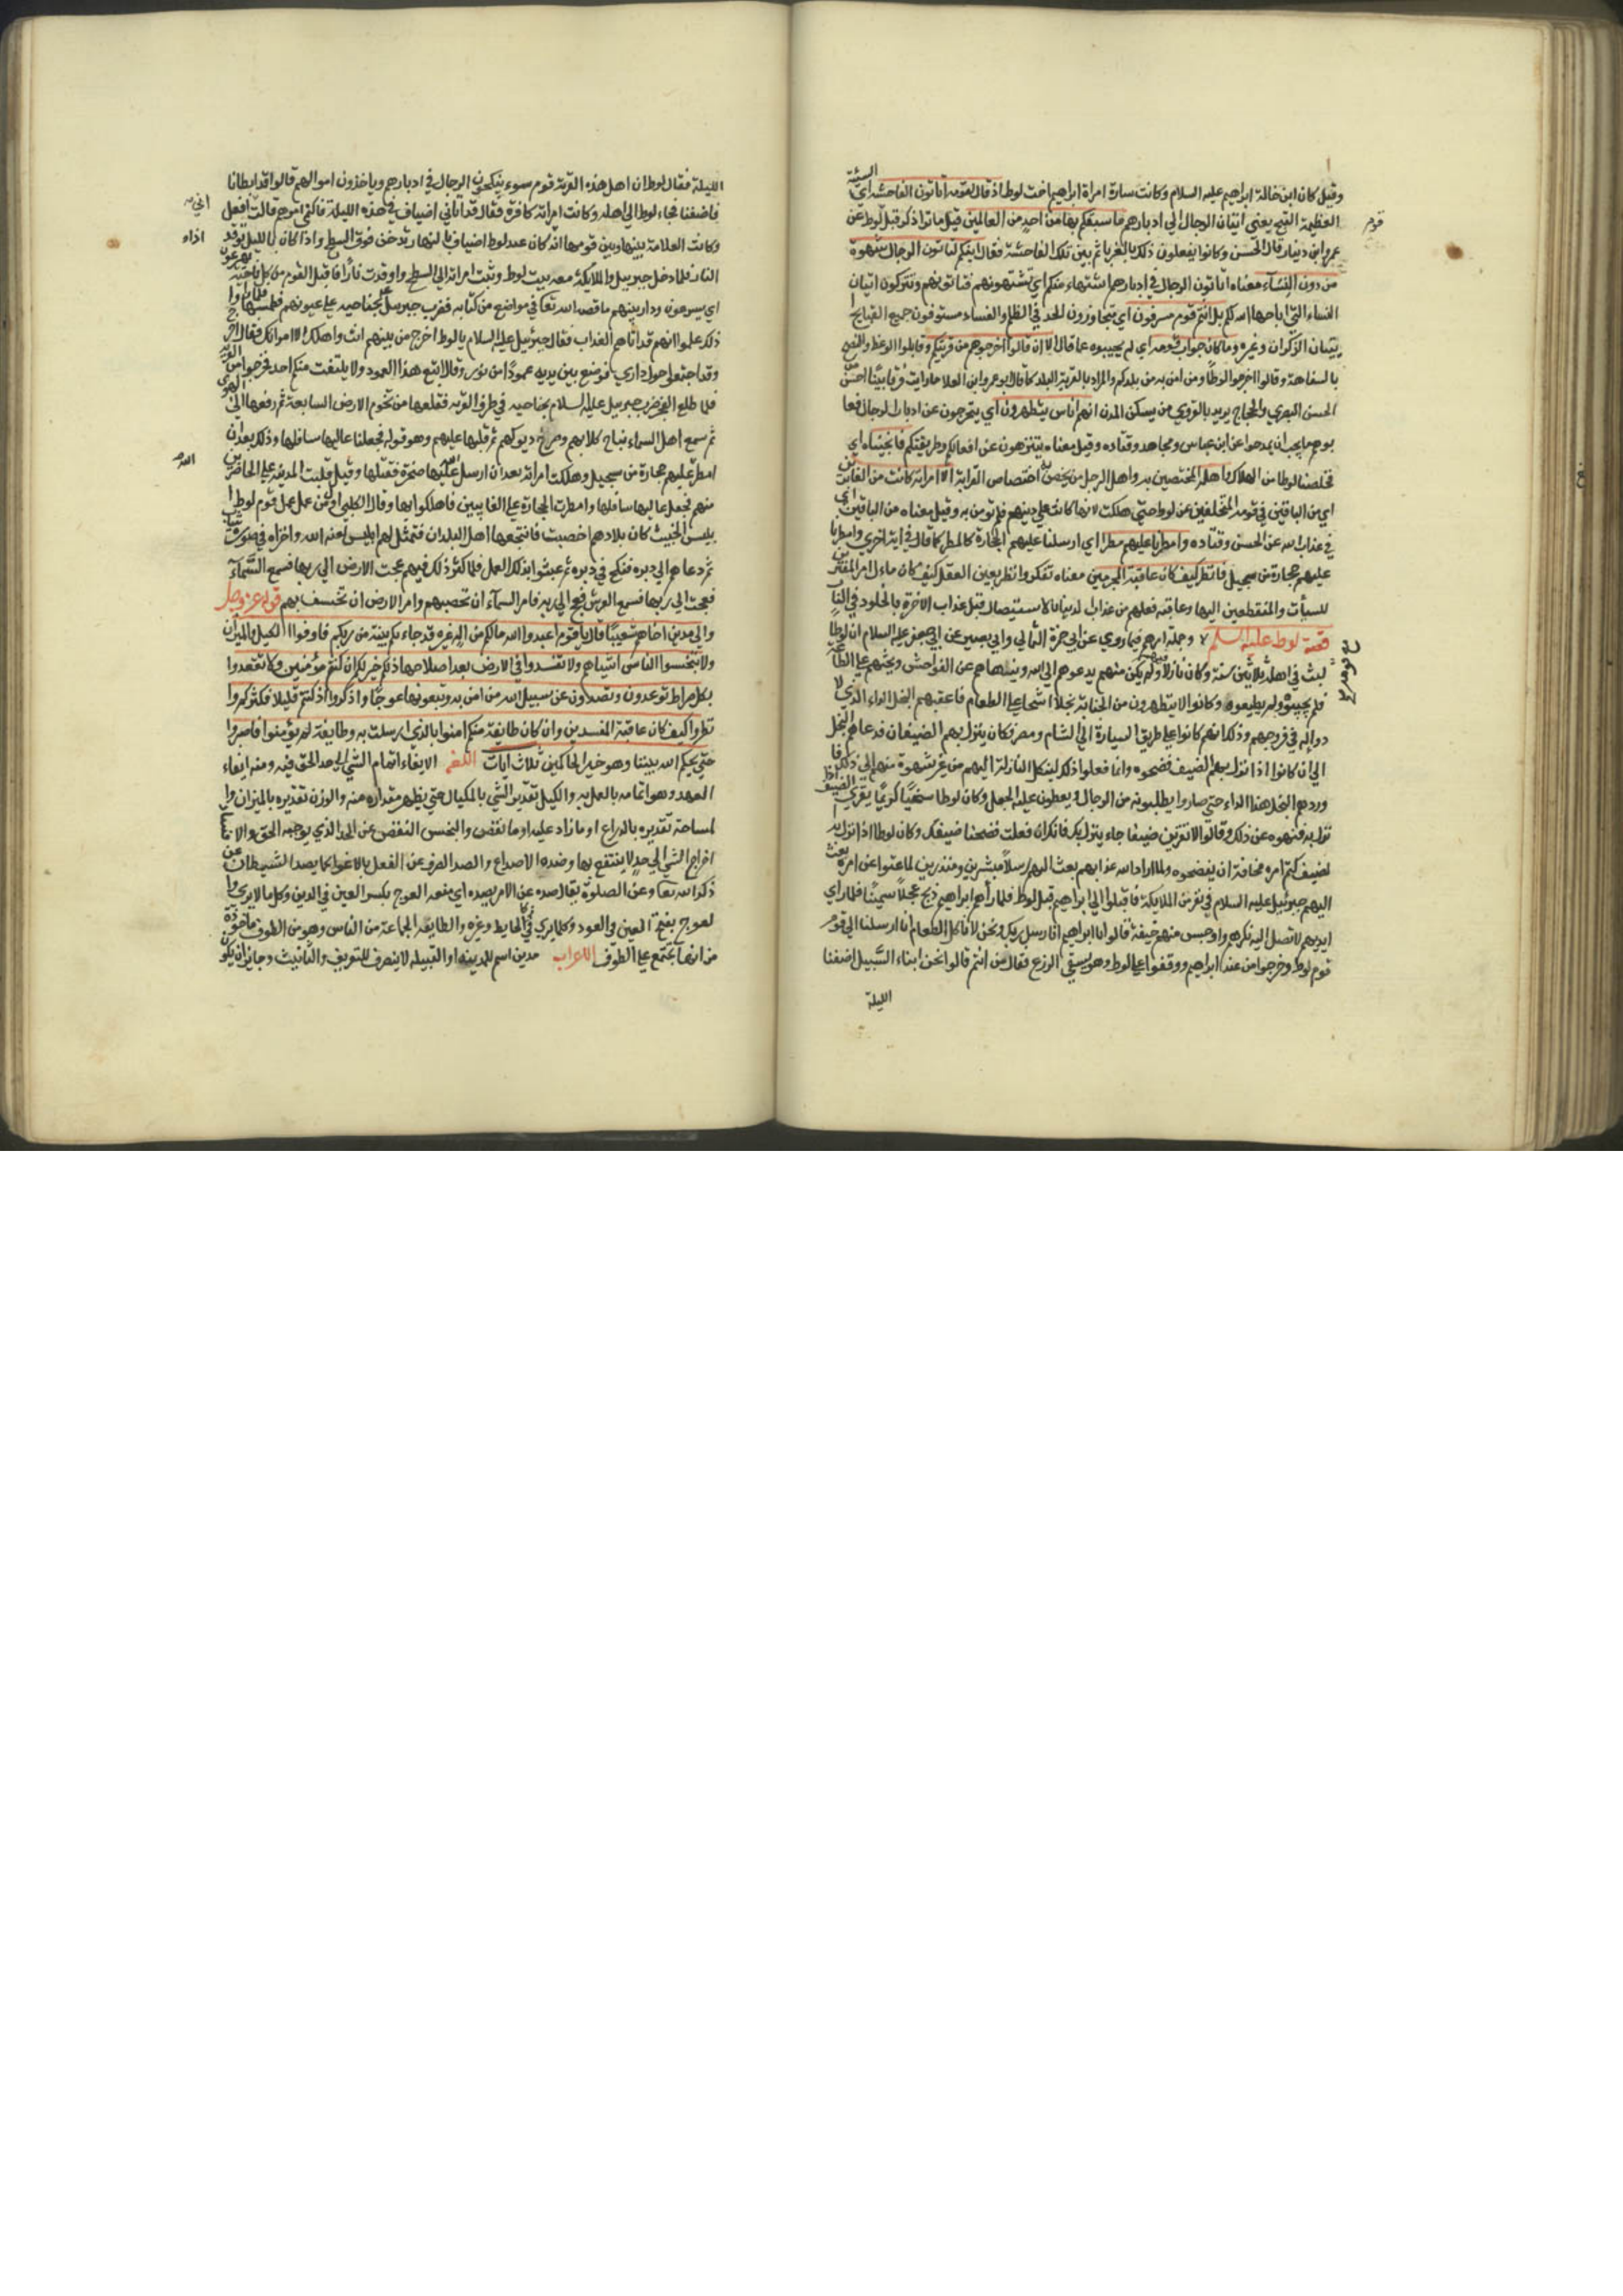 وقيل كان ابن خالة ابراهيم عليه السلام وكانت سارة امراة ابراهيم اخت لوط اذ قال لقومه اتاتون الفاحشة اي السيئة
العظيمة القبح يعني اتيان الرجال في ادبارهم ما سبقكم بها من احد من العالمين قيل ما نزا ذكر قبل لوط عن
قوم
عمرو ابن دينار قال الحسن وكانوا يفعلون ذلك بالغرباء ثم بين تلك الفاحشة فقال اينكم لتاتون الرجال شهوة
من دون النساء معناه اتاتون الرجال في ادبارهم اشتهاء منكم اي تشتهونهم فتاتونهم وتتركون اتيان
النساء التي اباحها الله لكم بل انتم قوم مسرفون اي متجاوزون للحد في الظلم والفساد مستوفون جميع القبايح
يتيان الذكران وغيره وما كان جواب قومه اي لم يجيبوه عما قال الا ان قالوا اخرجوهم من قريتكم وقابلوا الوعظ والنصح
بالسفاهة وقالوا اخرجوا لوطا ومن امن به من بلدكم والمراد بالقرية البلد كما قال ابو عمرو ابن العلا ما رايت قرويا احسن من
الحسن البصري والحجاج يريد بالقروي من يسكن المدن انهم اناس يتطهرون اي يتحرجون عن ادبار الرجال فعا
بوهم بما يجب ان يمدحوا عن ابن عباس ومجاهد وقتاده وقيل معناه يتنزهون عن افعالكم وطريقتكم فانجيناه اي
فخلصنا لوطا من الهلاك واهله المختصين به واهل الرجل من يختص به اختصاص القرابة الا امراته كانت من الغابرين
اي من الباقين في قومه المتخلفين عن لوط حتي هلكت لانها كانت علي دينهم فلم تومن به وقيل معناه من الباقين اي
في عذاب الله عن الحسن وقتاده وامطرنا عليهم مطرا اي ارسلنا عليهم الحجارة كالمطر كما قال في اية اخري وامطرنا
عليهم حجارة من سجيل فانظر كيف كان عاقبة المجرمين معناه تفكر وانظر بعين العقل كيف كان مآل امر المقترفين
للسيآت والمنقطعين اليها وعاقبة فعلهم من عذاب الدنيا بالاستيصال قبل عذاب الاخرة بالخلود في النار
قصة لوط عليه السلم وجملة امرهم فيما روي عن ابي حمزة الثمالي وابي بصير عن ابي جعفر عليه السلام ان لوطا
لبث في اهله ثلاثين سنة وكان نازلا فيهم ولم يكن منهم يدعوهم الي الله وينهاهم عن الفواحش ويحثهم علي الطاعة
فلم يجيبوه ولم يطيعوه وكانوا لا يتطهرون من الجنابة بخلا اشحا علي الطعام فاعقبهم البخل الداء الذي لا
دوا له في فروجهم وذلك انهم كانوا علي طريق السيارة الي الشام ومصر وكان ينزل بهم الضيفان فدعاهم البخل
الي ان كانوا اذا نزل بهم الضيف فضحوه وانما فعلوا ذلك لينكل النازلة اليهم من غير شهوة منهم الي ذلك فا
وردهم البخل هذا الداء حتي صاروا يطلبونه من الرجال ويعطون عليه الجعل وكان لوطا سخيا كريما يقري الضيف اذا
نزل به فنهوه عن ذلك وقالوا لا تقرين ضيفا جاء ينزل بك فانك ان فعلت فضحنا ضيفك وكان لوطا اذا نزل به
لضيف كتم امره مخافة ان يفضحوه ولما اراد الله عذابهم بعث اليهم رسلا مبشرين ومنذرين لما عتوا عن امره بعث
اليهم جبرئيل عليه السلام في نفر من الملايكة فاقبلوا الي ابراهيم قبل لوط فلما رآهم ابراهيم ذبح عجلا سمينا فلما راي
ايديهم لا تصل اليه نكرهم واوجس منهم خيفة قالوا يا ابراهيم انا رسل ربك ونحن لا ناكل الطعام انا ارسلنا الي قوم
قوم لوط وخرجوا من عند ابراهيم ووقفوا علي لوط وهو يسقي الزرع فقال من انتم قالوا نحن ابناء السبيل اضفنا
الليلة
الليلة فقال لوط ان اهل هذه القرية قوم سوء ينكحون الرجال في ادبارهم وياخذون اموالهم قالوا قد ابطانا
فاضفنا فجاء لوط الي اهله وكانت امراته كافرة فقال قد اتاني اضياف في هذه الليلة فاكتمي امرهم قالت افعل
وكانت العلامة بينها وبين قومها انه كان عند لوط اضياف بالنهار تدخن فوق السطح واذا كان بالليل توقد
النار فلما دخل جبريل والملايكة معه بيت لوط وثبت امراته الي السطح واوقدت نارا فاقبل القوم من كل ناحية يهرعون
اي يسرعون ودار بينهم ما قصه الله تعا في مواضع من كتابه فضرب جبرئيل بجناحيه علي عيونهم فطمسها فلما راوا
ذلك علموا انهم قد اتاهم العذاب فقال جبرئيل عليه السلام يا لوط اخرج من بينهم انت واهلك الا امراتك فقال كيف اخرج
وقد اجتمعوا حول داري فوضع بين يديه عمودا من نور وقال اتبع هذا العمود ولا يلتفت منكم احد فخرجوا من القرية
فلما طلع الفجر ضرب جبرييل عليه السلام بجناحيه في طرف القرية فقلعها من تخوم الارض السابعة ثم رفعها الي الهوى
ثم سمع اهل السماء نباح كلابهم وصراخ ديوكهم ثم قلبها عليهم وهو قوله فجعلنا عاليها سافلها وذلك بعد ان
امطر عليهم حجارة من سجيل وهلكت امراته بعد ان ارسل الله عليها صخرة فقتلها وقيل قلبت المدينة علي الحاضرين
منهم فجعل عاليها سافلها وامطرت الحجارة علي الغايبين فاهلكوا بها وقال الكلبي اول من عمل عمل قوم لوط ا
بليس الخبيث كان بلادهم اخصبت فانتجعها اهل البلدان فتمثل لهم ابليس لعنه الله واخزاه في صورة شاب
ثم دعاهم الي دبره فنكح في دبره ثم عبثوا بذلك العمل فلما كثر ذلك فيهم عجت الارض الي ربها فسمع السماء
فعجت الي ربها فسمع العرش فعج الي ربه فامر السماء ان تحصبهم وامر الارض ان تخسف بهم قوله عز وجل
والي مدين اخاهم شعيبا قال يا قوم اعبدوا الله ما لكم من اله غيره قد جاءتكم بينة من ربكم فاوفوا الكيل والميزان
ولا تبخسوا الناس اشياءهم ولا تفسدوا في الارض بعد اصلاحها ذلكم خير لكم ان كنتم مؤمنين ولا تقعدوا
بكل صراط توعدون وتصدون عن سبيل الله من امن به وتبغونها عوجا واذكروا اذ كنتم قليلا فكثركم وا
نظروا كيف كان عاقبة المفسدين وان كان طايفة منكم امنوا بالذي ارسلت به وطايفة لم يؤمنوا فاصبروا
حتي يحكم الله بيننا وهو خير الحاكمين ثلاث ايات اللغة الايفاء اتمام الشي الي حد الحق فيه ومنه ايفاء
العهد وهو اتمامه بالعمل به والكيل تقدير الشي بالمكيال حتي يظهر مقداره منه والوزن تقديره بالميزان وا
لمساحة تقديره بالذراع او ما زاد عليه او ما نقص والبخس النقص عن الحد الذي يوجبه الحق والافساد
اخراج الشي الي حد لا ينتفع بها وضده الاصلاح والصد الصرف عن الفعل بالاغوا كما يصد الشيطان عن
ذكر الله تعا وعن الصلوة يقال صده عن الامر يصده اي منعه العوج بكسر العين في الدين وكل ما لا يري وا
لعوج بفتح العين في العود وكلما يري كالحايط وغيره والطايفة الجماعة من الناس وهو من الطوف ماخوذة
من انها تجتمع علي الطوف الاعراب مدين اسم للمدينة او القبيلة لا ينصرف للتعريف والتانيث وجايز ان يكو